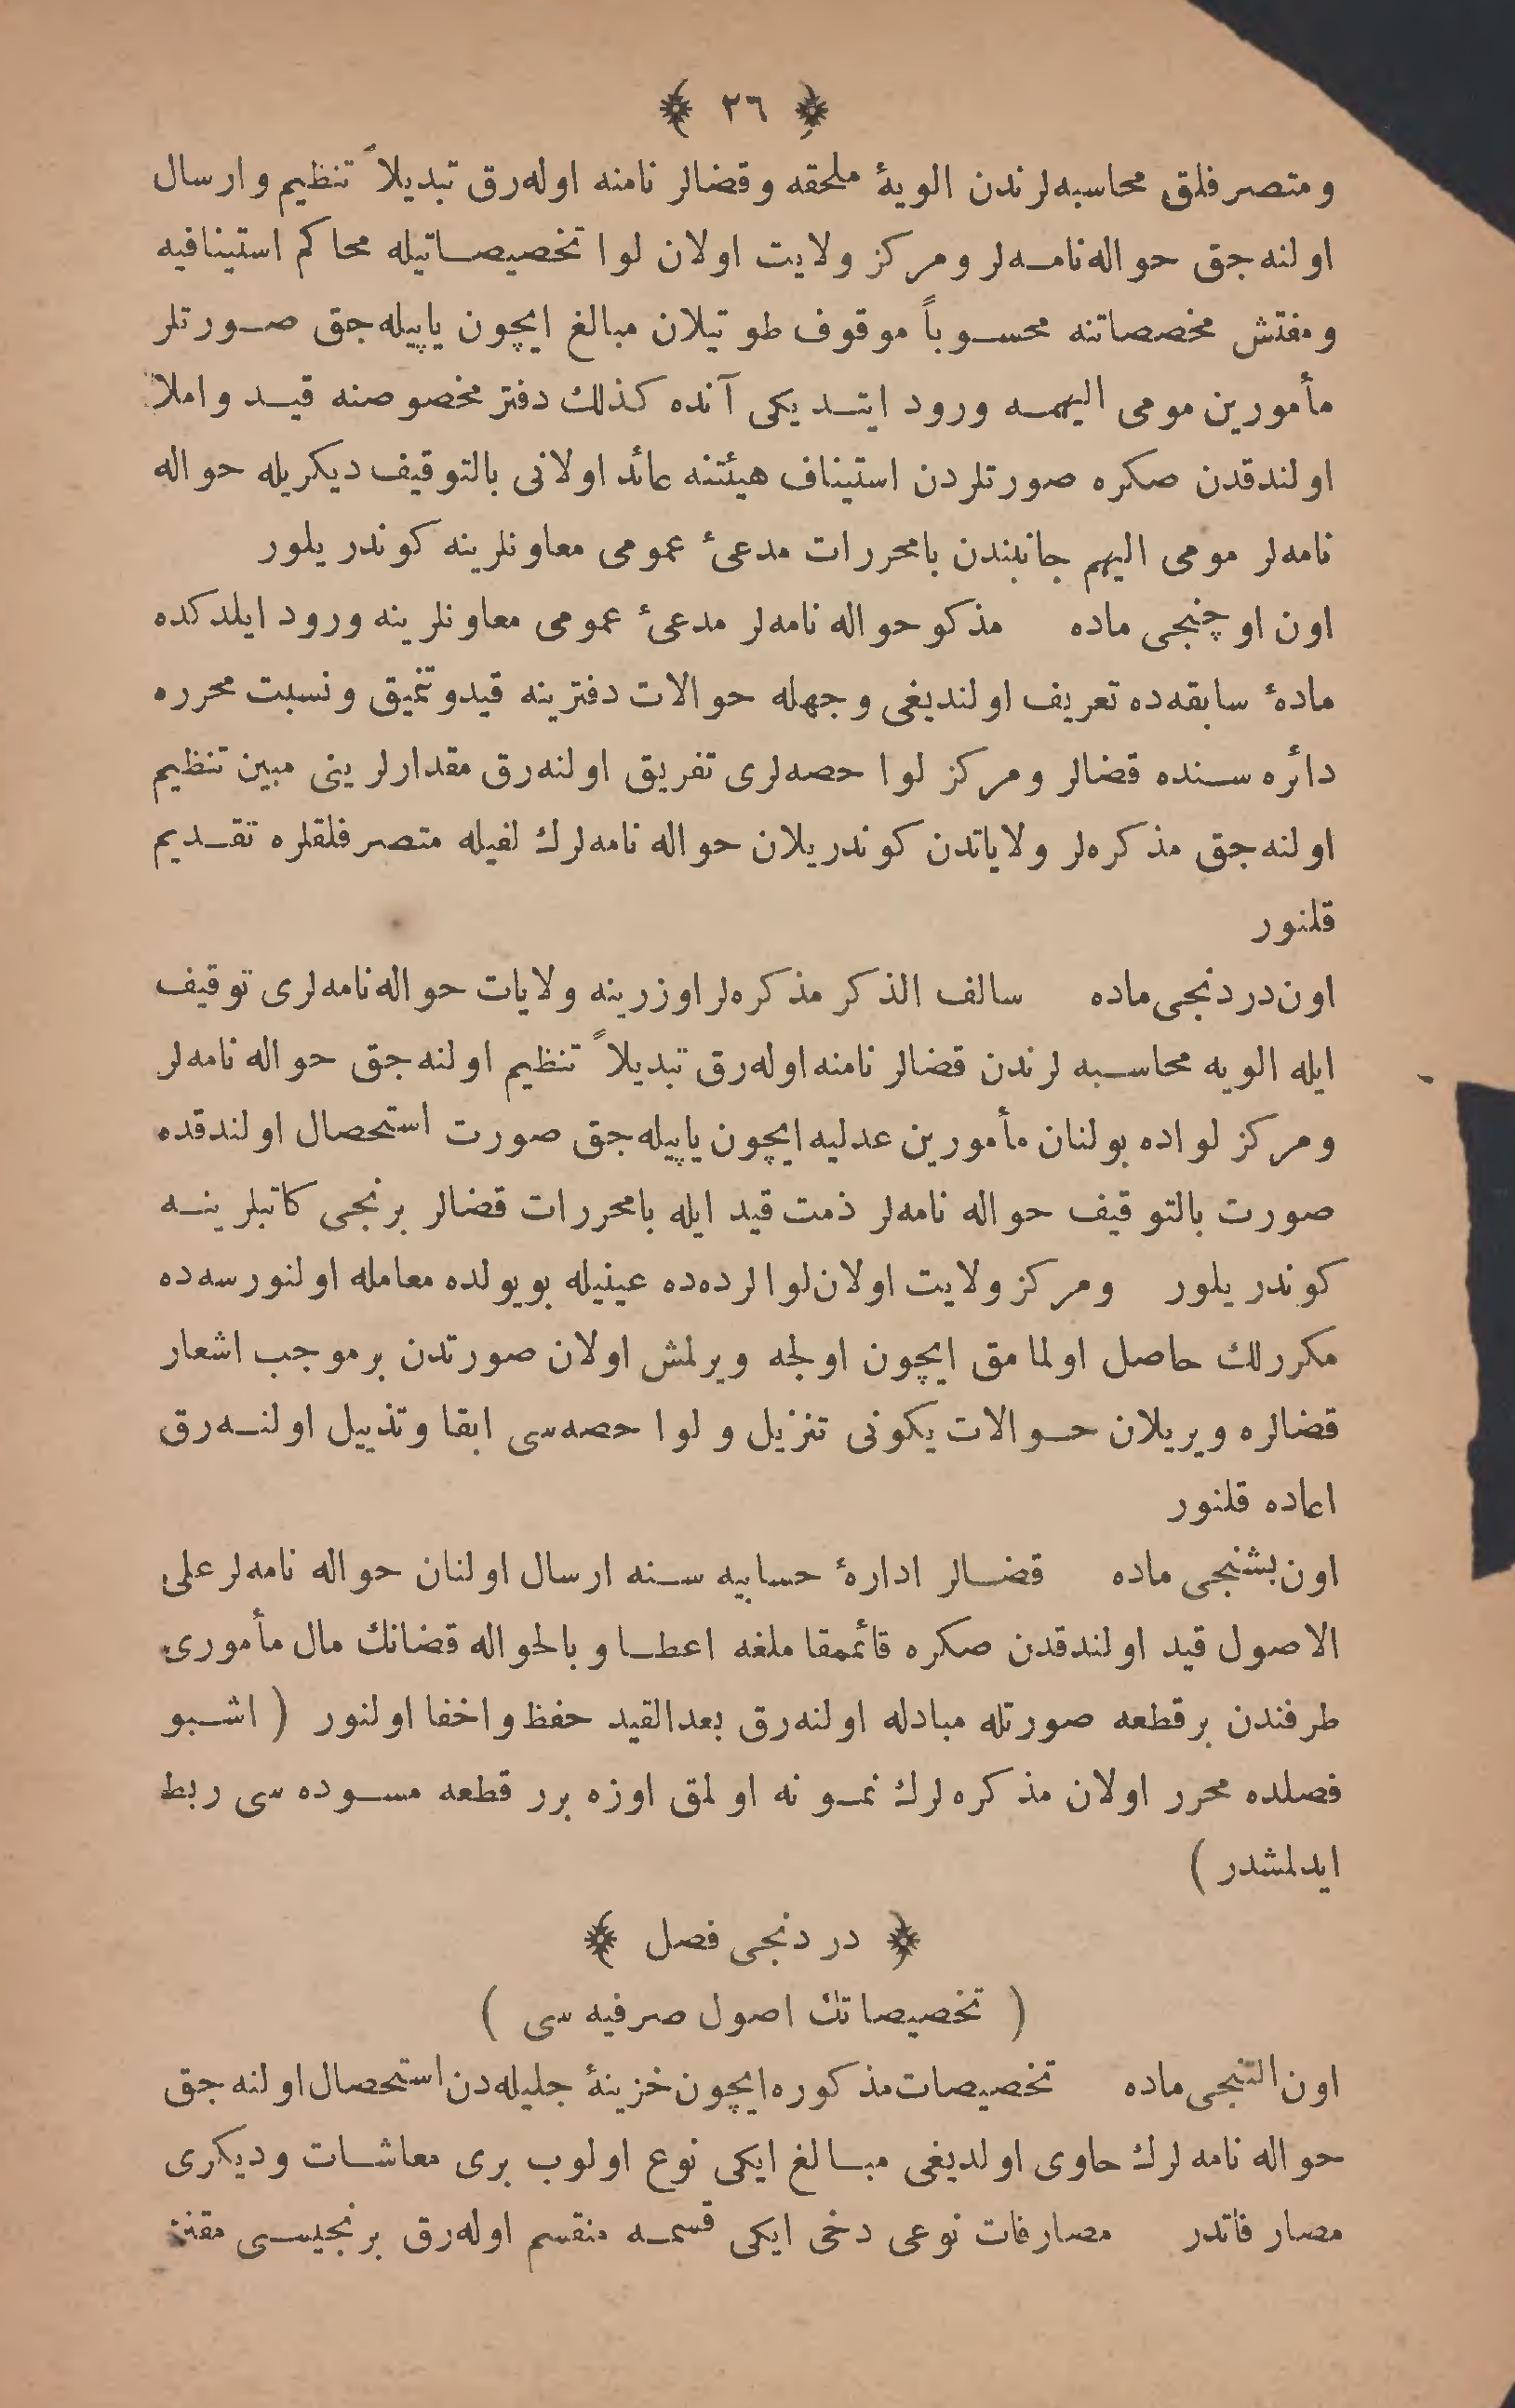 ﴿ ٢٦ ﴾
ومتصرفلق محاسبه‌لرندن الویهٔ ملحقه وقضالر نامنه اوله‌رق تبدیلاً تنظیم وارسال
اولنه‌جق حواله‌نامه‌لر ومرکز ولایت اولان لوا تخصیصاتیله محاکم استینافیه
ومفتش مخصصاتنه محسوباً موقوف طوتیلان مبالغ ایچون یاپیله‌جق صورتلر
مأمورین مومی الیهمه ورود ایتدیکی آنده کذلك دفتر مخصوصنه قید واملا
اولندقدن صکره صورتلردن استیناف هیئتنه عائد اولانی بالتوقیف دیکریله حواله
نامه‌لر مومی الیهم جانبندن بامحررات مدعیٔ عمومی معاونلرینه کوندریلور
اون اوچنجی ماده    مذکو حواله نامه‌لر مدعیٔ عمومی معاونلرینه ورود ایلدکده
مادهٔ سابقه‌ده تعریف اولندیغی وجهله حوالات دفترینه قیدوتنمیق ونسبت محرره
دائره سنده قضالر ومرکز لوا حصه‌لری تفریق اولنه‌رق مقدارلرینی مبین تنظیم
اولنه‌جق مذکره‌لر ولایاتدن کوندریلان حواله نامه‌لرك لفیله متصرفلقلره تقدیم
قلنور
اون‌دردنجی‌ماده    سالف الذکر مذکره‌لر اوزرینه ولایات حواله‌نامه‌لری توقیف
ایله الویه محاسبه لرندن قضالر نامنه اوله‌رق تبدیلاً تنظیم اولنه‌جق حواله نامه‌لر
ومرکز لواده بولنان مأمورین عدلیه ایچون یاپیله‌جق صورت استحصال اولندقده
صورت بالتوقیف حواله نامه‌لر ذمت قید ایله بامحررات قضالر برنجی کاتبلرینه
کوندریلور    ومرکز ولایت اولان‌لوالرده‌ده عینیله بویولده معامله اولنورسه‌ده
مکررلك حاصل اولمامق ایچون اولجه ویرلمش اولان صورتدن برموجب اشعار
قضالره ویریلان حوالات یکونی تنزیل و لوا حصه‌سی ابقا وتذییل اولنه‌رق
اعاده قلنور
اون‌بشنجی ماده    قضالر ادارهٔ حسابیه سنه ارسال اولنان حواله نامه‌لر علی
الاصول قید اولندقدن صکره قائممقاملغه اعطا و بالحواله قضانك مال مأموری
طرفندن برقطعه صورتله مبادله اولنه‌رق بعدالقید حفظ واخفا اولنور ( اشبو
فصلده محرر اولان مذکره‌لرك نمونه اولمق اوزه برر قطعه مسوده سی ربط
ایدلمشدر )
﴿ دردنجی فصل ﴾
( تخصیصاتك اصول صرفیه سی )
اون‌التنجی‌ماده    تخصیصات‌مذکوره‌ایچون‌خزینهٔ جلیله‌دن‌استحصال‌اولنه‌جق
حواله نامه‌لرك حاوی اولدیغی مبالغ ایکی نوع اولوب بری معاشات ودیکری
مصارفاتدر    مصارفات نوعی دخی ایکی قسمه منقسم اوله‌رق برنجیسی مقنن